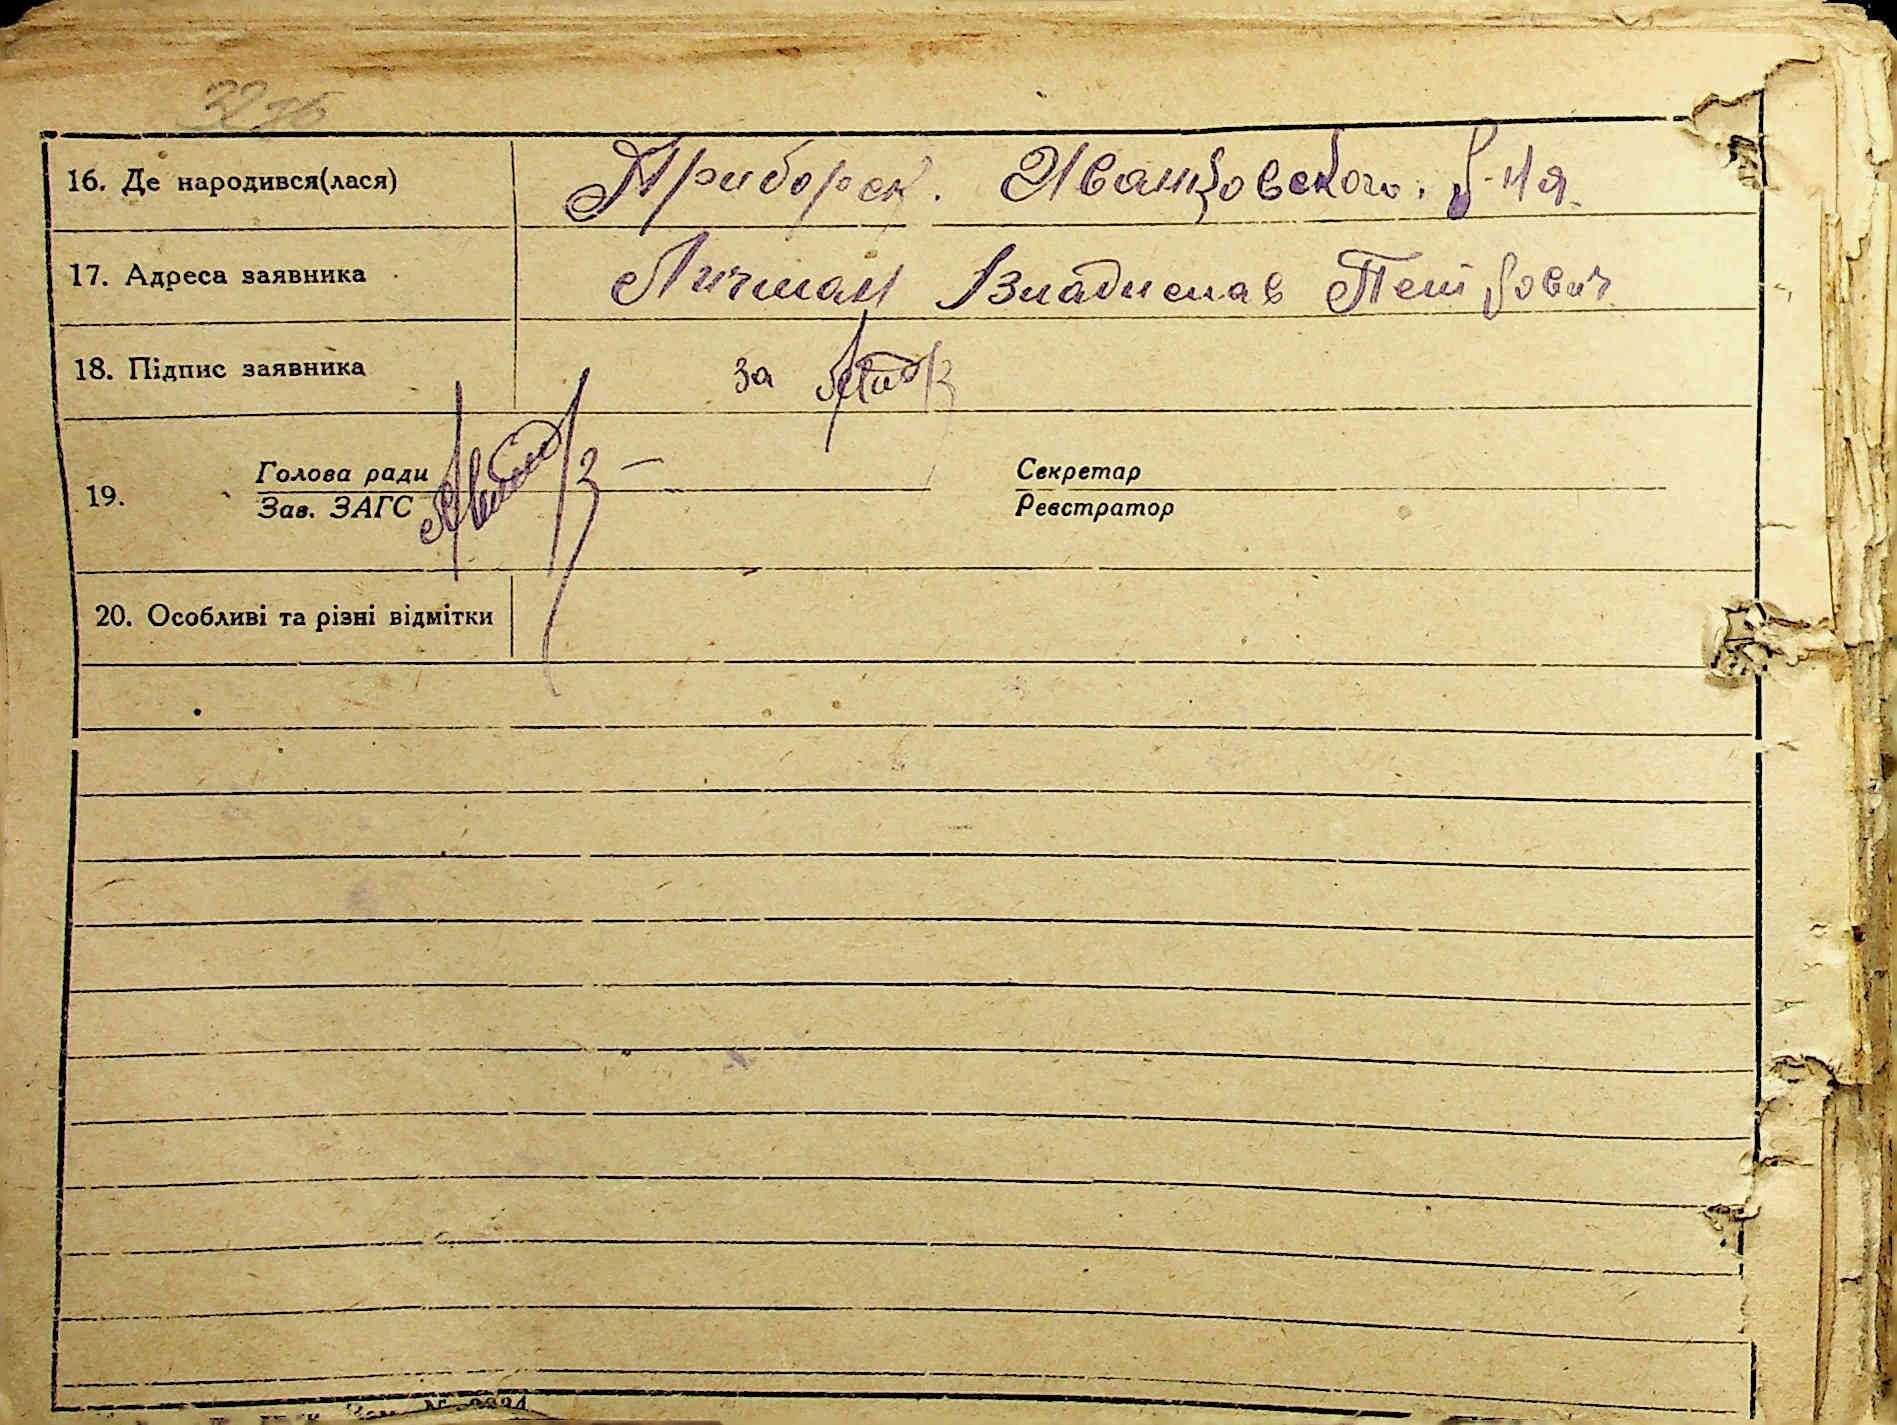 32 зв
16. Де народився(лася) Приборск. Иванковского. р-на.
17. Адреса заявника Личман Владислав Петрович
18. Підпис заявника за
Голова ради Секретар
19.
Зав. ЗАГС Реєстратор
20. Особливі та різні відмітки